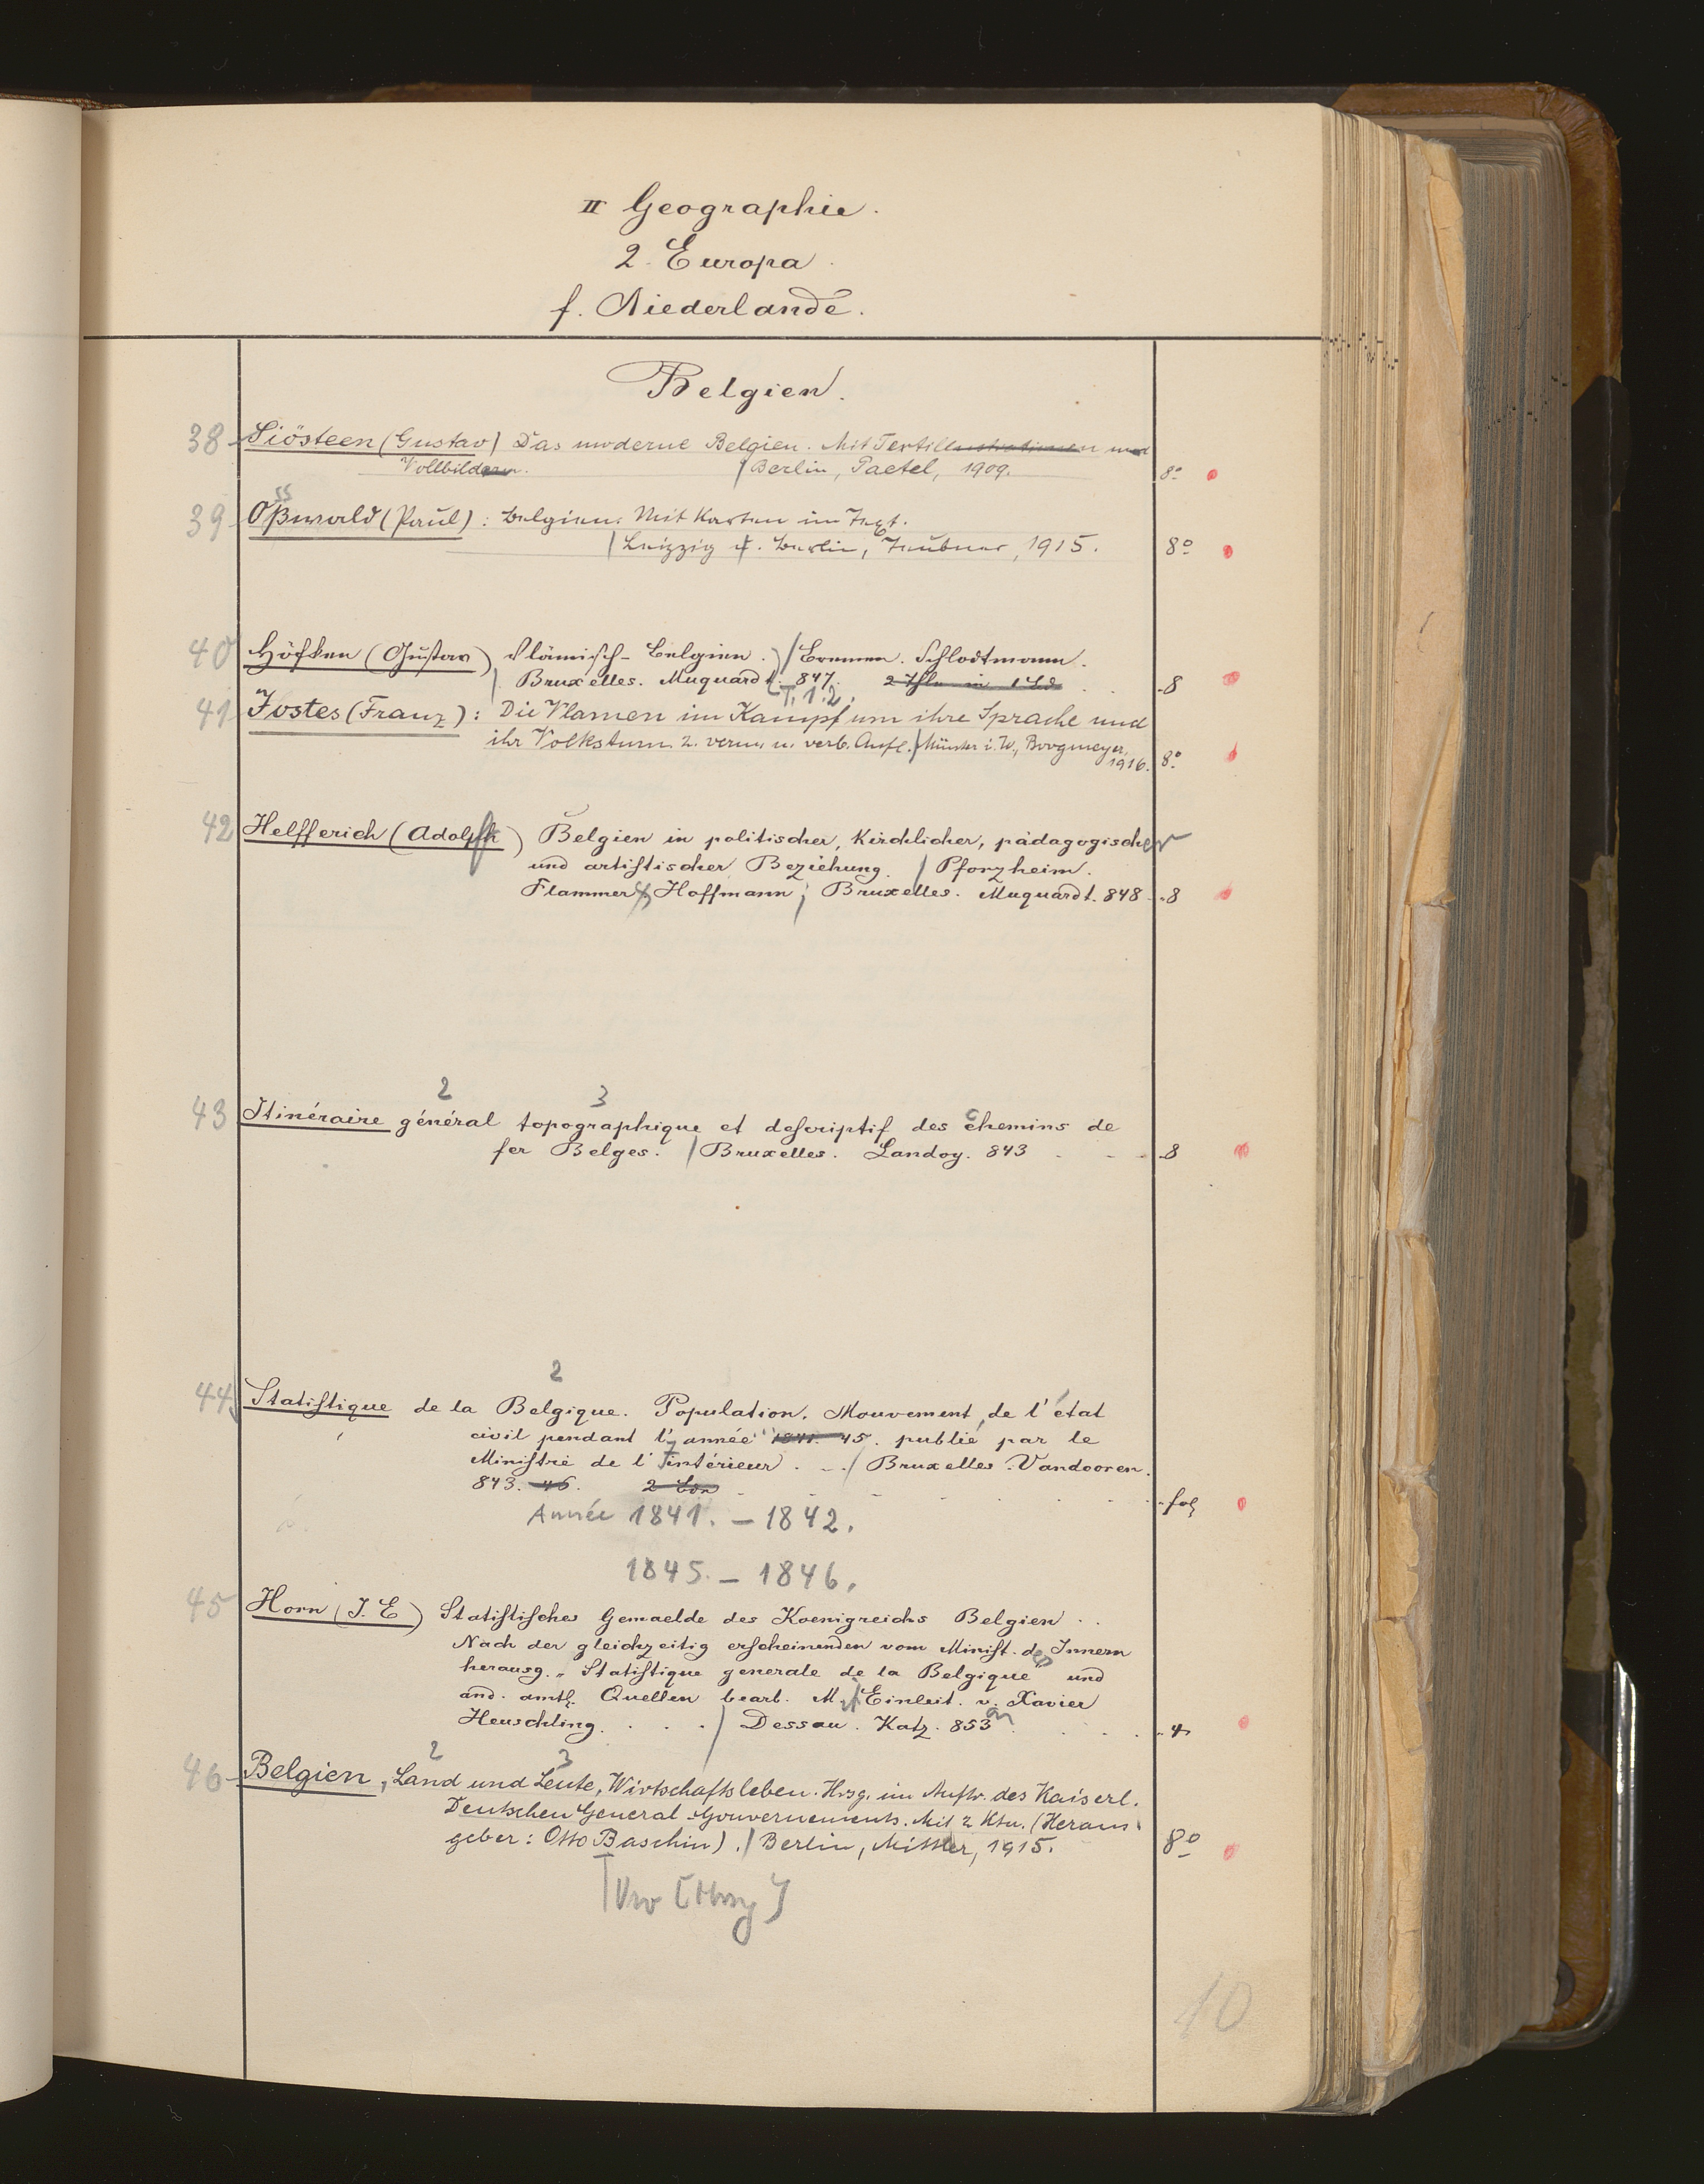 II Geographie.
2. Europa.
f. Niederlande.
Belgien.
38 Siösteen (Gustav) Das moderne Belgien. Mit Textillustrationen und
Vollbildern. / Berlin, Paetel, 1909. 8°
ss
39 Oßwald (Paul): Belgien. Mit Karten im Text.
/ Leipzig u. Berlin, Teubner, 1915. 8°
40 Höfken (Gustav) Vlämisch-Belgien. / Bremen. Schlodtmann.
Bruxelles. Muquardt. 847. 2 Thle in 1 Bd 8
T. 1.2.
41 Jostes (Franz): Die Vlamen im Kampf um ihre Sprache und
ihr Volkstum. 2. verm. u. verb. Aufl. / Münster i. W., Borgmeyer,
1916. 8°
42 Helfferich (Adolph) Belgien in politischer, kirchlicher, pädagogischer
und artistischer Beziehung. / Pforzheim.
Flammer & Hoffmann; Bruxelles. Muquardt. 848 8
2 3
43 Itinéraire général topographique et descriptif des chemins de
fer Belges. / Bruxelles. Landoy. 843 8
2
44 Statistique de la Belgique. Population. Mouvement de l'état
civil pendant l'année 1841. 45. publié par le
Ministre de l'intérieur. / Bruxelles. Vandooren.
843. 46. 2 Bde fol
Année 1841. – 1842.
1845. – 1846.
45 Horn (J. E) Statistisches Gemaelde des Koenigreichs Belgien.
Nach der gleichzeitig erscheinenden vom Minist. des Innern
herausg. „Statistique generale de la Belgique" und
and. amtl. Quellen bearb. M. Einleit. v. Xavier
Heuschling. / Dessau. Katz. 853 4
2 3
46 Belgien, Land und Leute, Wirtschaftsleben. Hrsg. im Auftr. des Kaiserl.
Deutschen General-Gouvernements. Mit 2 Ktn. (Heraus-
geber: Otto Baschin). / Berlin, Mittler, 1915. 8°
10